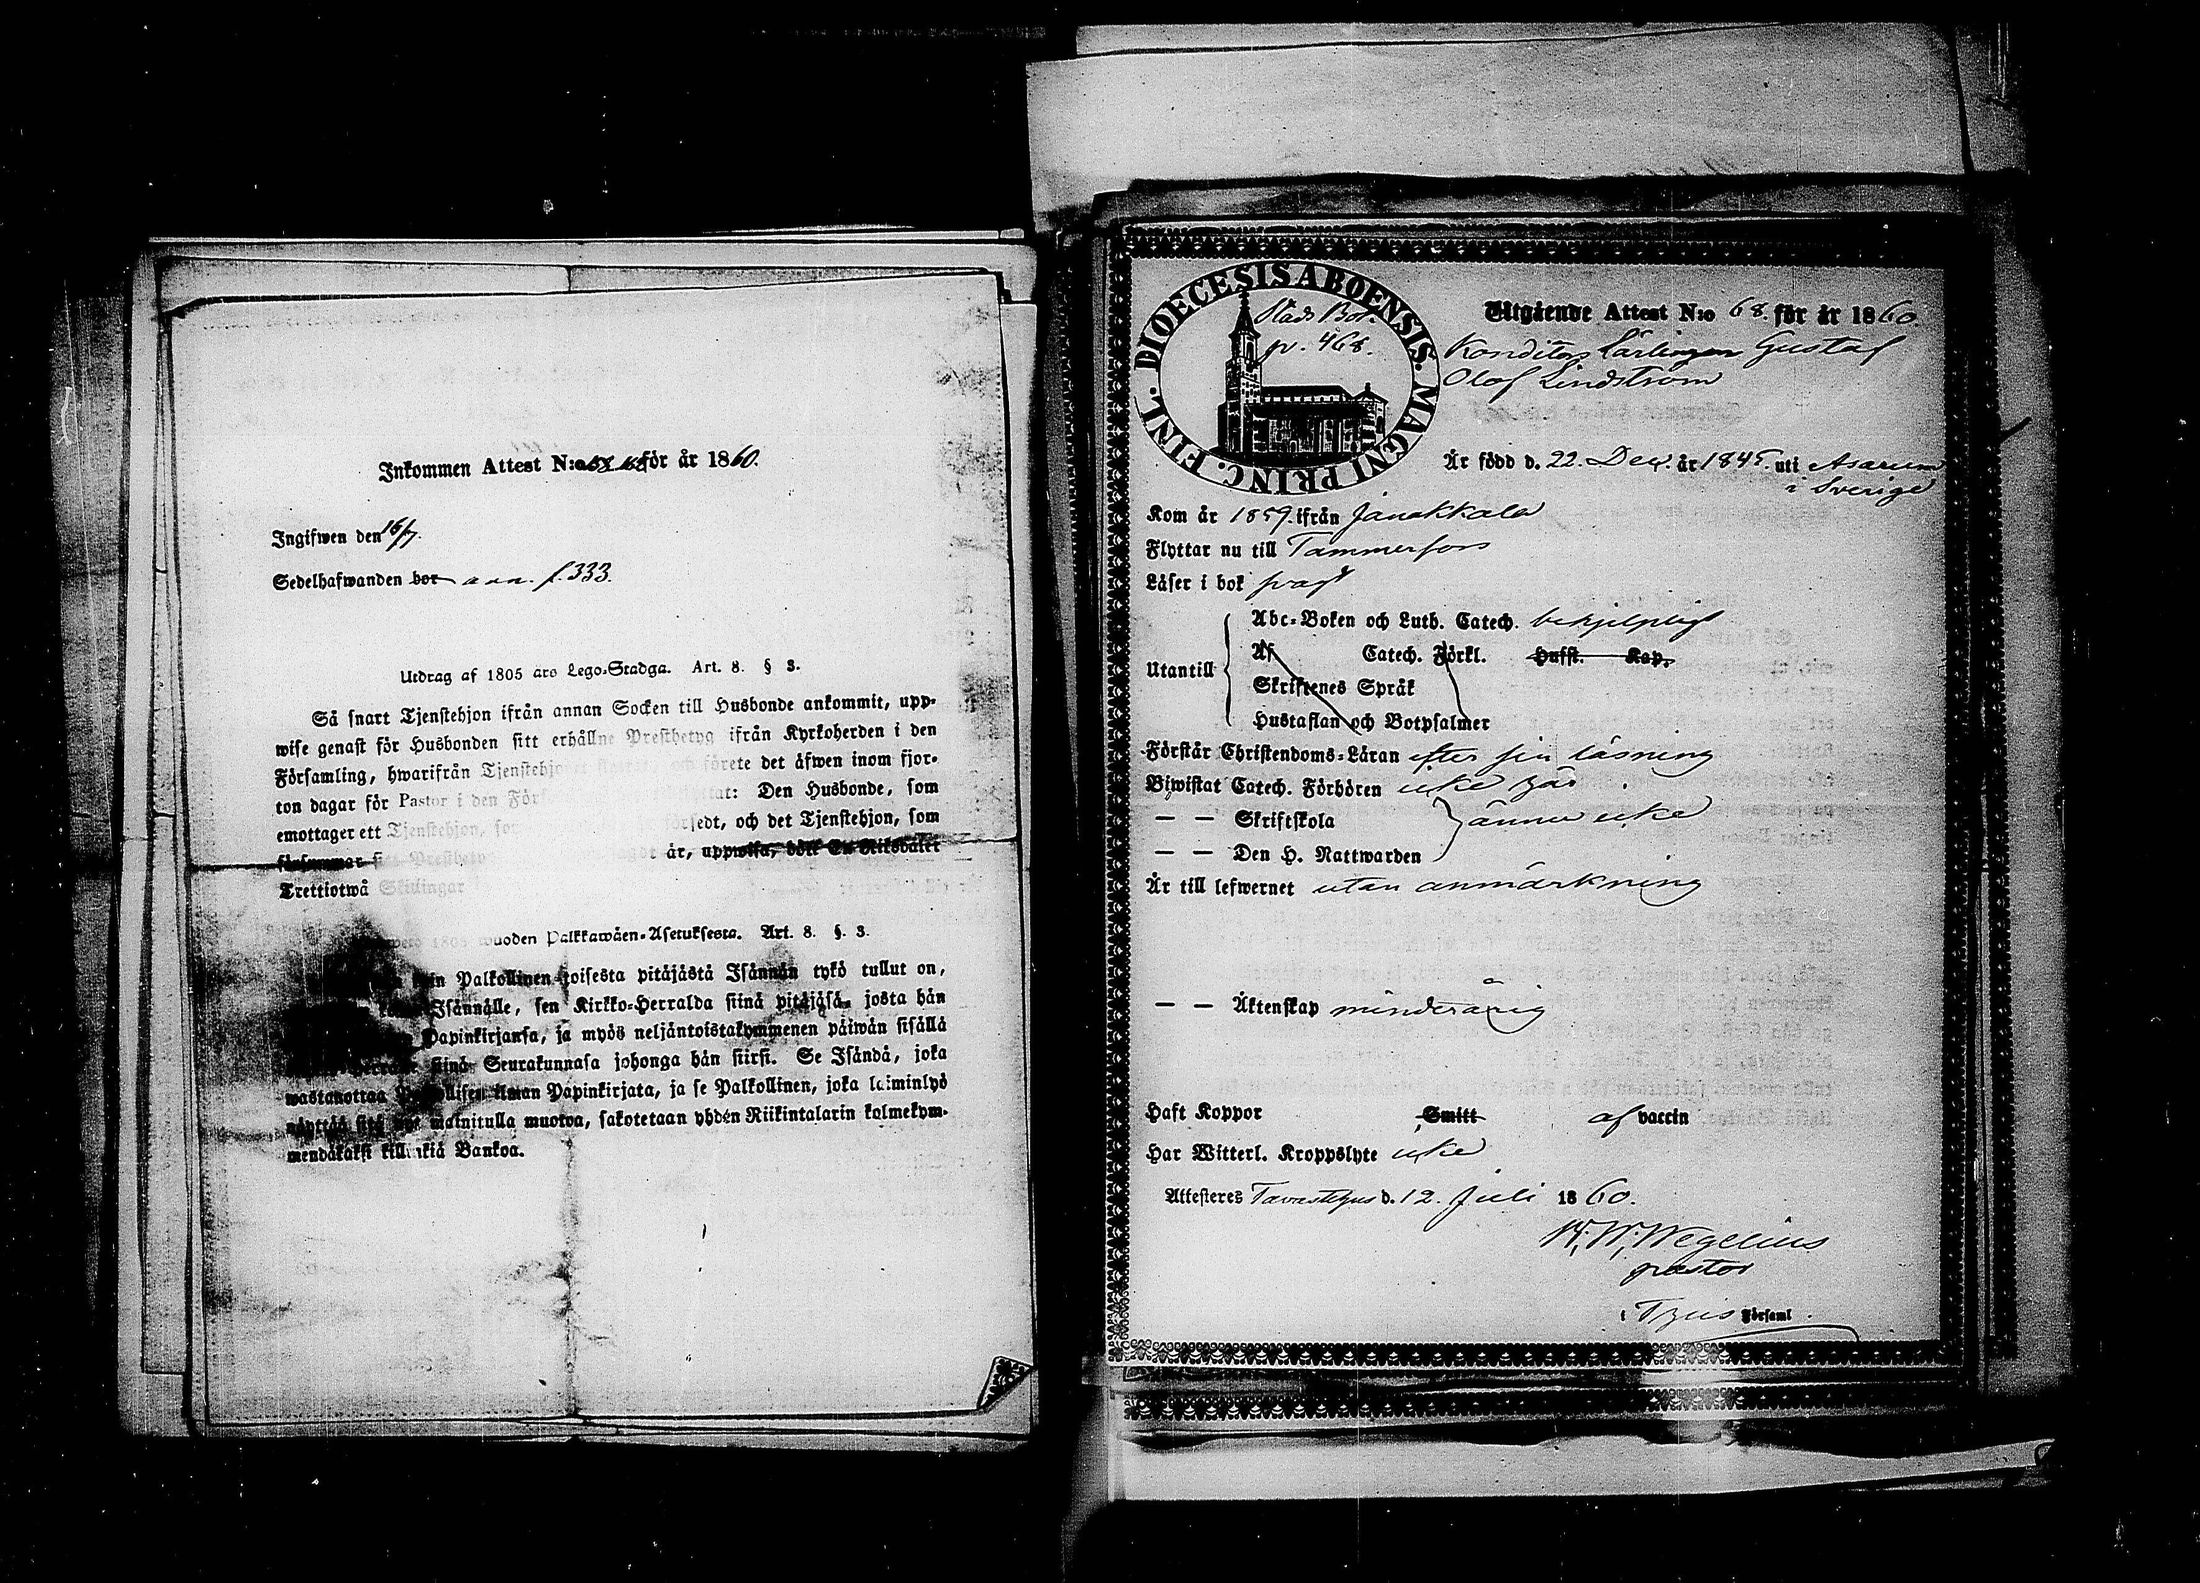 Inkommen Attest N:o för år 1860.
Ingifwen den 16/7.
Sedelhafwanden bor ann. f. 333.
Utdrag af 1805 års Lego-Stadga. Art. 8. § 3.
Så snart Tjenstehjon ifrån annan Socken till Husbonde ankommit, upp-
wise genast för Husbonden sitt erhållne Prestbetyg ifrån Kyrkoherden i den
Församling, hwarifrån och förete det äfwen inom fjor-
ton dagar för Pastor i den Den Husbonde, som
emottager ett Tjenstehjon, försedt, och det Tjenstehjon, som
försummar sitt Prestbetyg är, uppwisa, böte En Riksdaler
Trettiotwå Skillingar
1805 wuoden Palkkawäen-Asetuksesta. Art. 8. §. 3.
Palkollinen toisesta pitäjästä Isännän tykö tullut on,
Isännälle, sen Kirkko-Herralda siinä pitäjäsä, josta hän
Papinkirjansa, ja myös neljäntoistakymmenen päiwän sisällä
siinä Seurakunnasa johonga hän siirsi. Se Isändä, joka
wastanottaa Palkollisen ilman Papinkirjata, ja se Palkollinen, joka laiminlyö
näyttää sitä mainitulla muotoa, sakotetaan yhden Riikintalarin kolmekym-
mendäkaksi killinkiä Bankoa.
DIOECESIS ABOENSIS. MAGNI PRINC. FINL.
Stads Bok.
p. 468.
Utgående Attest N:o 68. för år 1860.
Konditors Lärlingen Gustaf
Olof Lindström
Är född d. 22. Dec. år 1845. uti Asarum
i Sverige
Kom år 1859. ifrån Janakkala
Flyttar nu till Tammerfors
Läser i bok svagt
Utantill
Abc-Boken och Luth. Catech. behjelpligt
Af Catech. Förkl. Hufst. Kap.
Skriftenes Språk
Hustaflan och Botpsalmer
Förstår Christendoms-Läran efter sin läsning
Biwistat Catech. Förhören icke här
— — Skriftskola
ännu icke
— — Den H. Nattwarden
Är till lefwernet utan anmärkning
— — Äktenskap minderårig
Haft Koppor Smitt af vaccin
Har Witterl. Kroppslyte icke
Attesteres Tavastehus d. 12. Juli 1860.
W. W. Wegelius
pastor
i T:hus Församl.